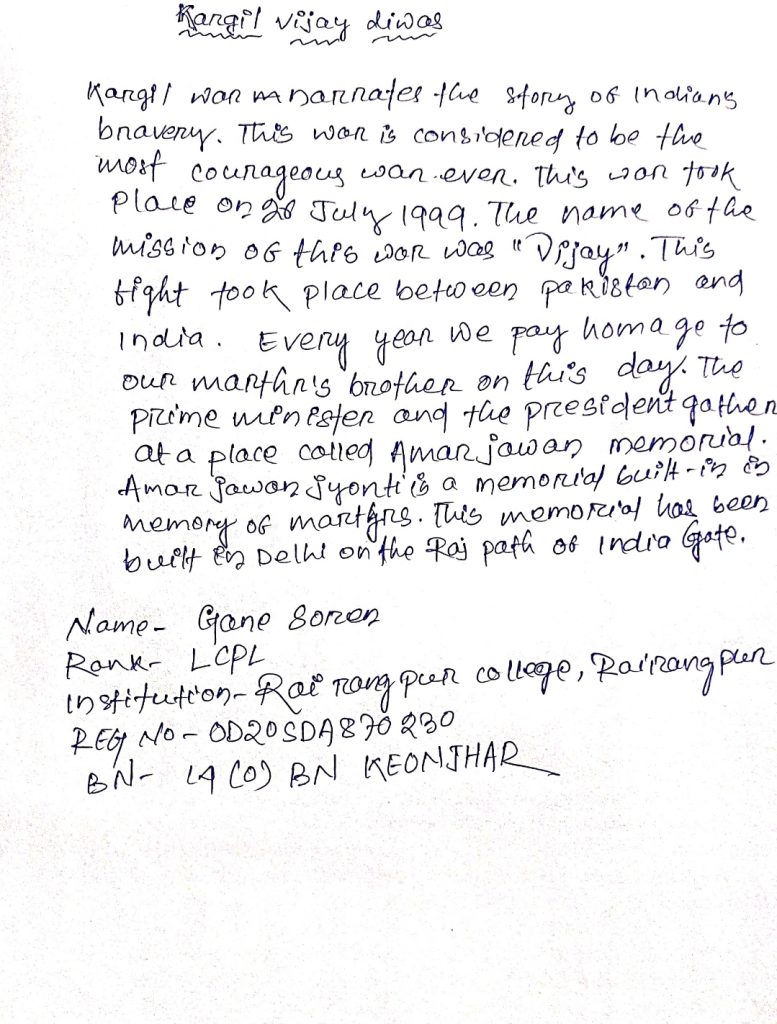 Kargil vijay diwas
Kargil war narrates the story of Indian's
bravery. This war is considered to be the
most courageous war ever. This war took
place on 26 July 1999. The name of the
mission of this war was "Vijay". This
fight took place between pakistan and
India. Every year we pay homage to
our marthr's brother on this day. The
prime minister and the president gather
at a place called Amar jawan memorial.
Amar jawan jyonti is a memorial built-in in
memory of martyrs. This memorial has been
built in Delhi on the Raj path of India Gate.
Name- Gane Soren
Rank- LCPL
Institution- Rai rangpur college, Rairangpur
REG No- OD20SDA870230
BN- 14 (O) BN KEONJHAR